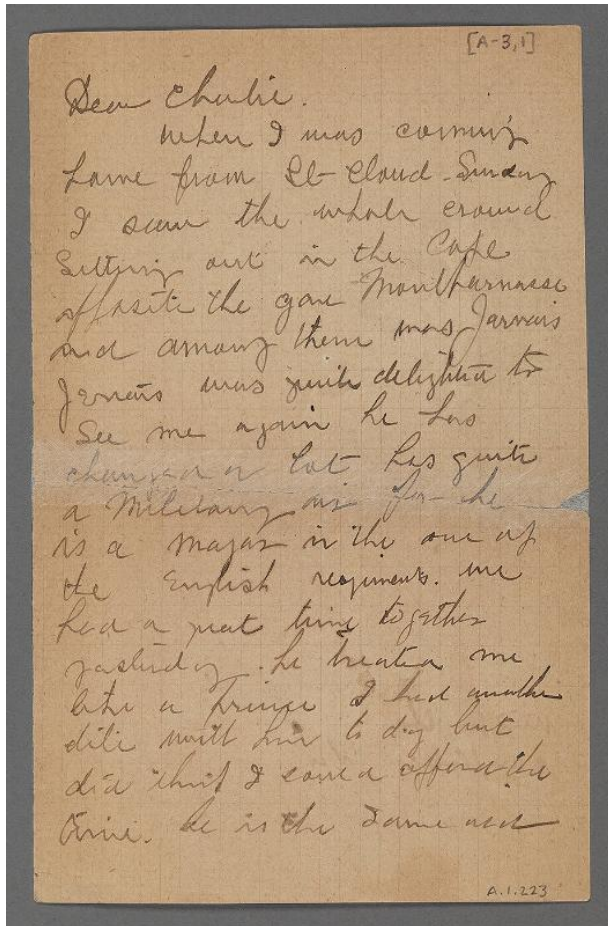 [A-3,1]
Dear Charlie.
When I was coming
home from St-Cloud Sunday
I saw the whole crowd
Setting out in the Cafe
opposite the gare Montparnasse
and among them was Jarvais
Jervais was quite delighted to
See me again he has
changed a lot has quite
a Military air for he
is a Major in the one of
the English regiments. we
had a great time together
yasterday. he treated me
like a Prince I had another
with him to day but
did I afford the
time. he is the same and
A.1.223